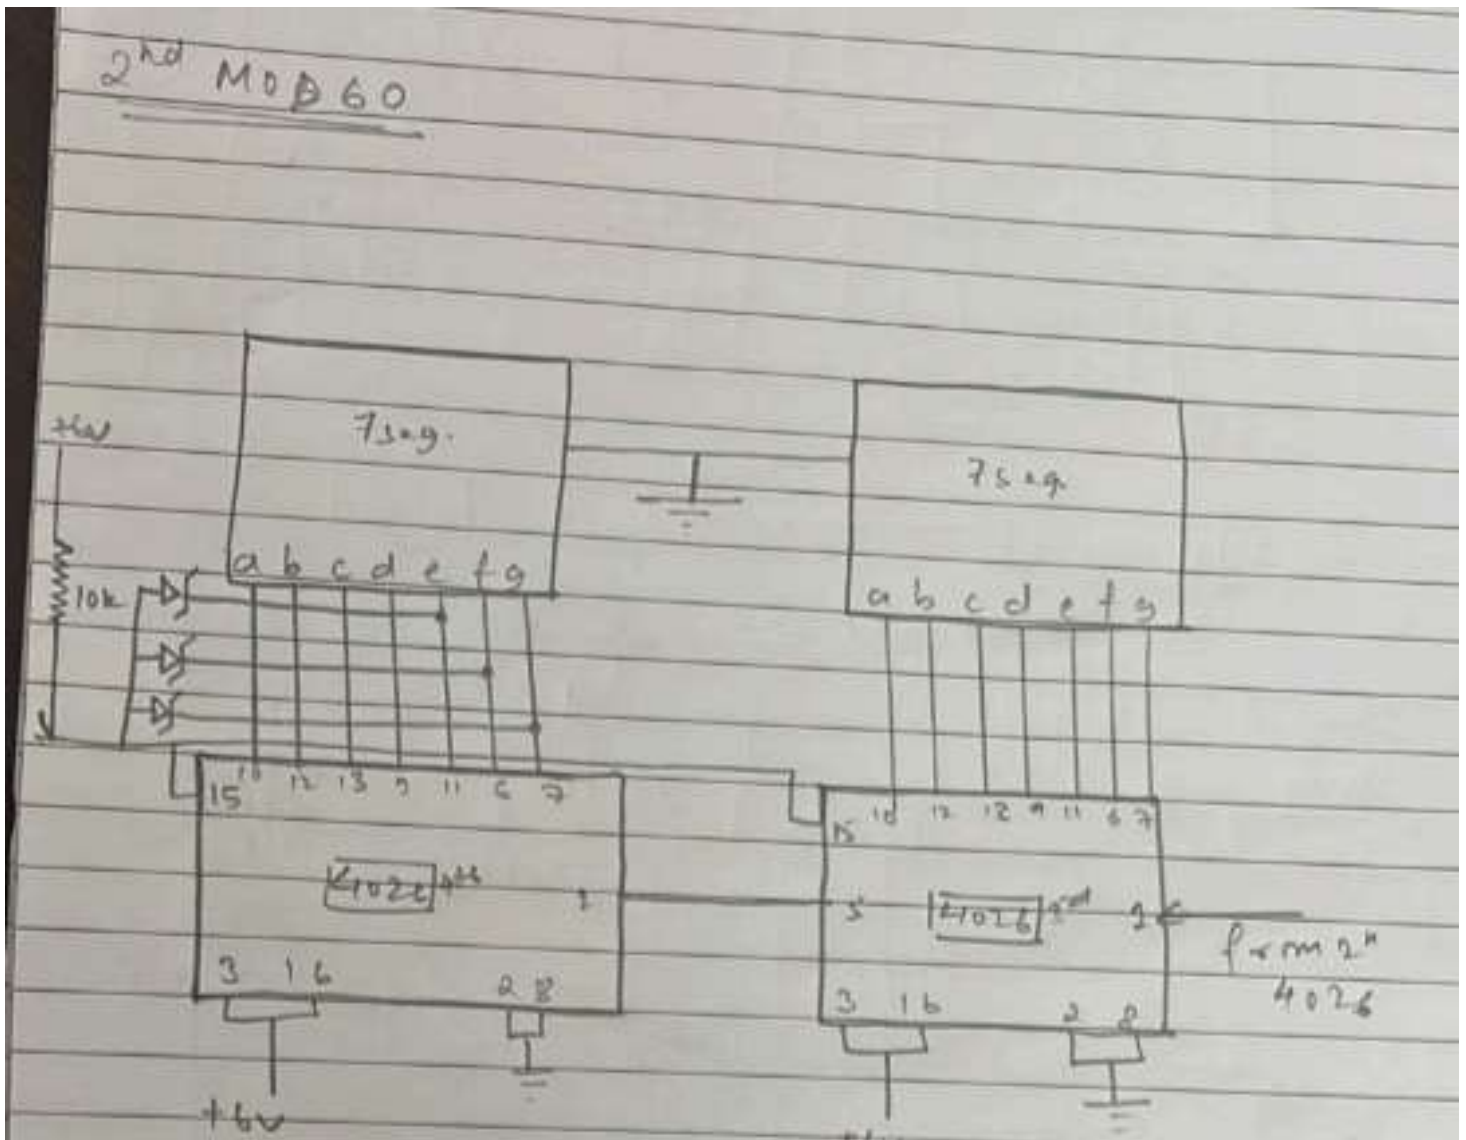 2nd MOD 60
+6v
7seg.
7seg.
10k
a b c d e f g
a b c d e f g
15 10 12 13 9 11 6 7
15 10 12 9 11 6 7
4026 4th
1
5
4026 3rd
1
from 2n
4026
3 16 2 8
3 16 2 8
+6v